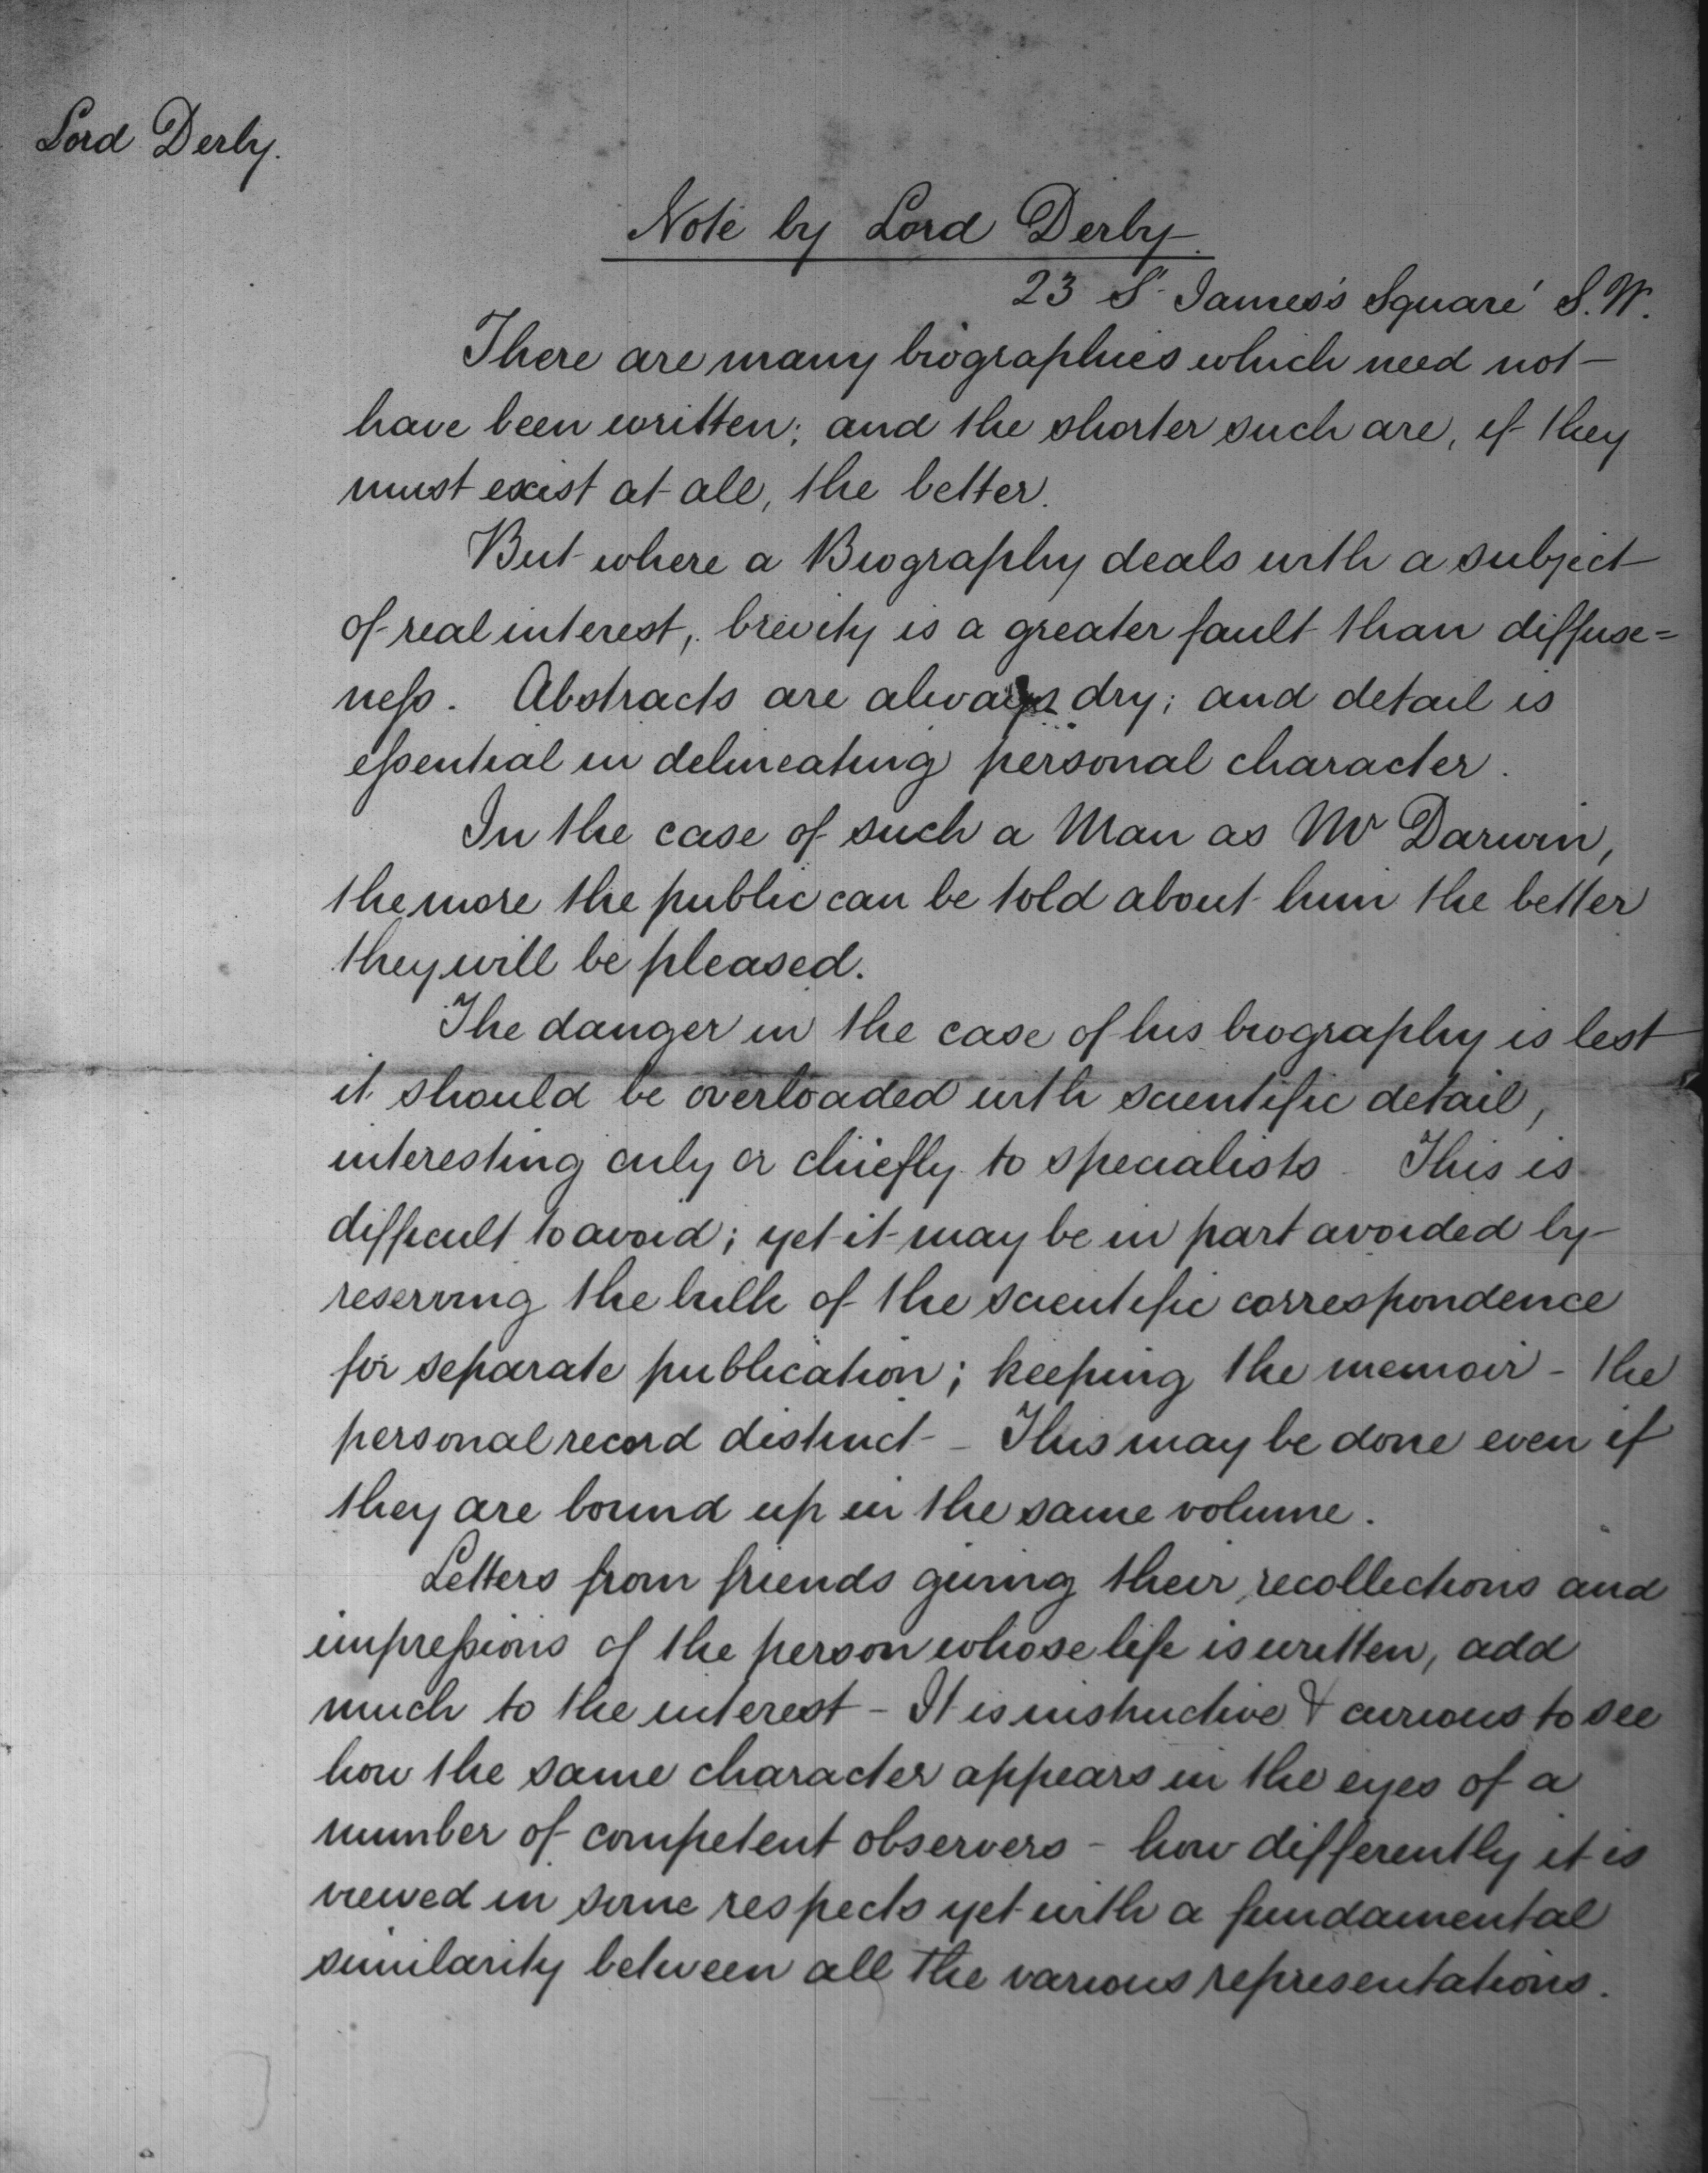 Lord Derby.
Note by Lord Derby.
23 St James's Square S.W.
There are many biographies which need not
have been written; and the shorter such are, if they
must exist at all, the better.
But where a Biography deals with a subject
of real interest, brevity is a greater fault than diffuse=
ness. Abstracts are always dry; and detail is
essential in delineating personal character.
In the case of such a Man as Mr Darwin,
the more the public can be told about him the better
they will be pleased.
The danger in the case of his biography is lest
it should be overloaded with scientific detail,
interesting only or chiefly to specialists. This is
difficult to avoid; yet it may be in part avoided by
reserving the bulk of the scientific correspondence
for separate publication; keeping the memoir - the
personal record distinct - This may be done even if
they are bound up in the same volume.
Letters from friends giving their recollections and
impressions of the person whose life is written, add
much to the interest - It is instructive & curious to see
how the same character appears in the eyes of a
number of competent observers - how differently it is
viewed in some respects yet with a fundamental
similarity between all the various representations.